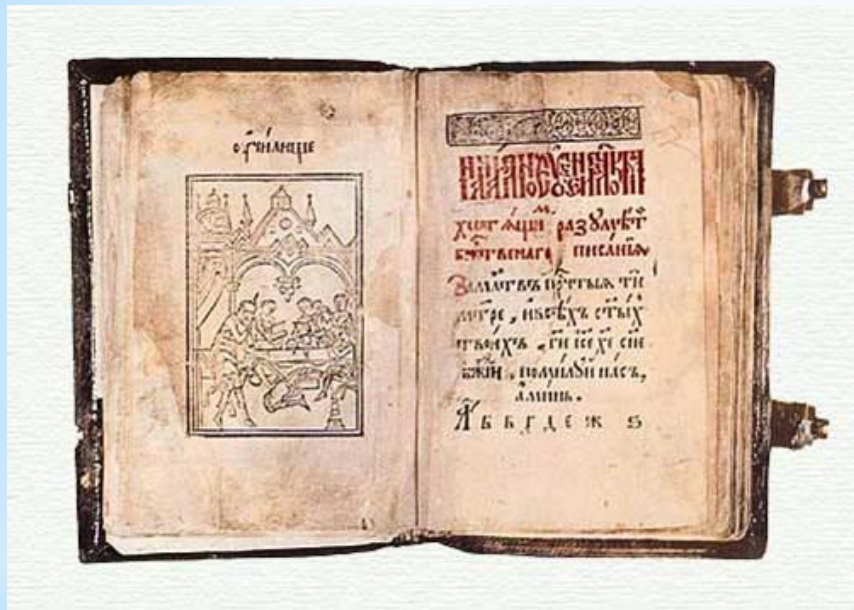 ᲂу҆чи́лище
хотѧ́щимъ разꙋмѣ́ти
бжⷭ҇твенаго писа́нїѧ
За мл҃твъ прⷱ҇тыѧ ти
мт҃ре, и всѣ́хъ ст҃ы́хъ
твои́хъ, гд҃и і҆с҃е хе҃ сн҃е
бж҃їй, поми́лꙋй на́съ,
а҆ми́нь.
А Б В Г Д Е Ж Ѕ